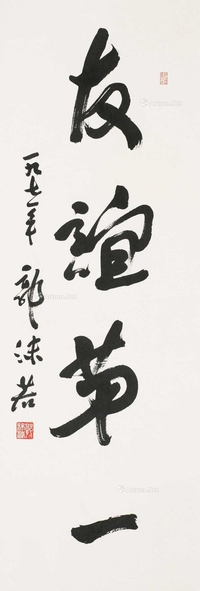 友谊第一
一九七一年 郭沫若